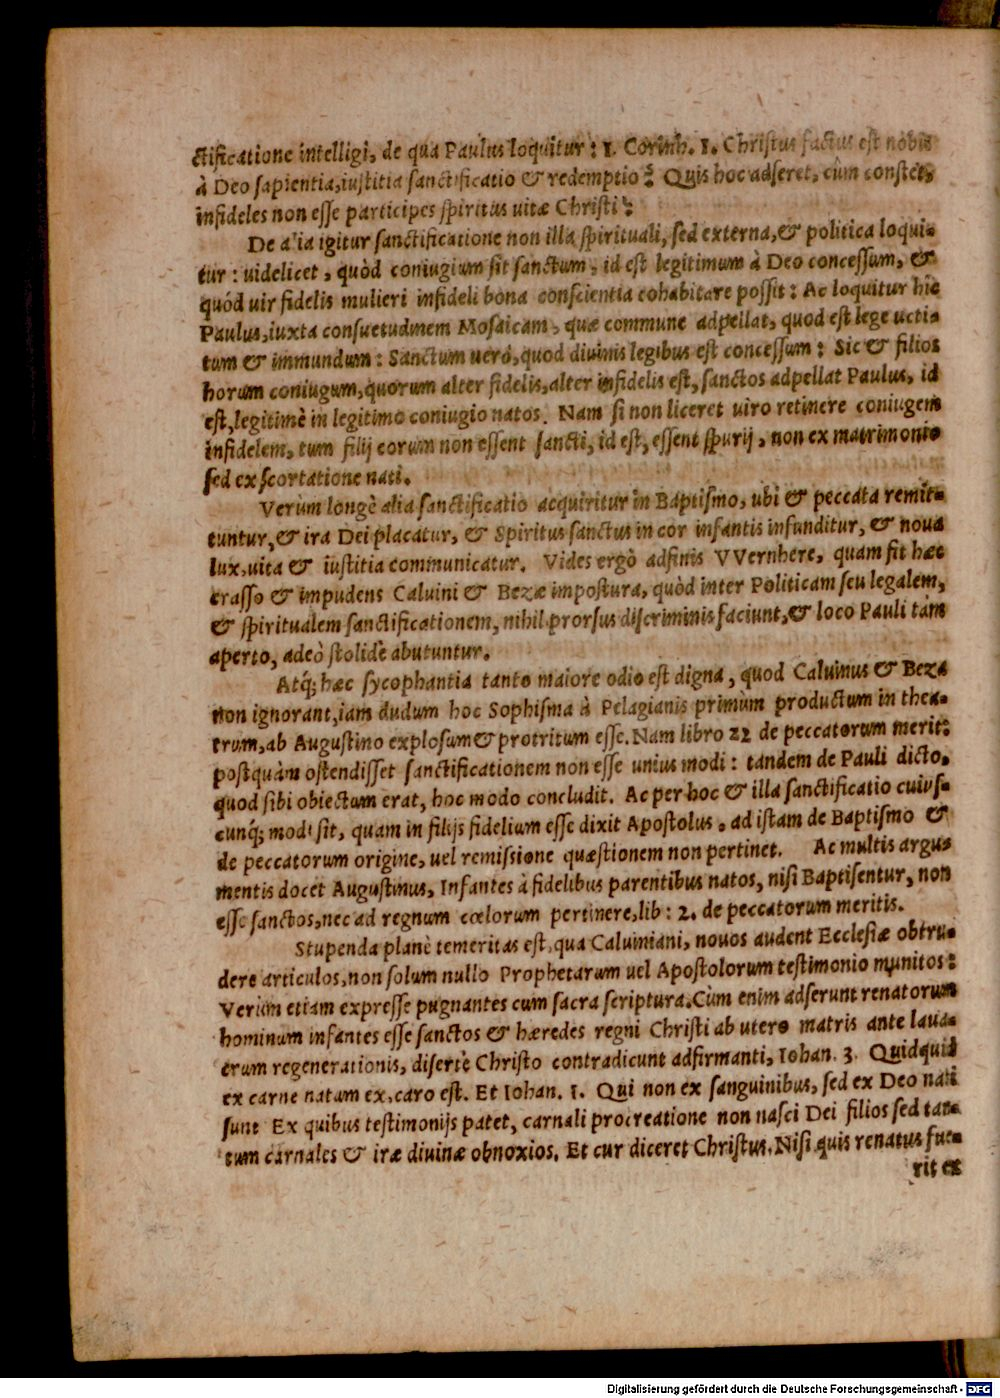 ctificatione intelligi, de qua Paulus loquitur : 1. Corinh. 1. Christus factus est nobis
à Deo sapientia, iustitia sanctificatio & redemptio? Quis hoc adseret, cùm constet,
infideles non esse participes spiritus uitæ Christi?
De alia igitur sanctificatione non illa spirituali, sed externa, & politica loqui-
tur : uidelicet, quòd coniugium sit sanctum, id est legitimum à Deo concessum, &
quód uir fidelis mulieri infideli bona conscientia cohabitare possit: Ac loquitur hic
Paulus, iuxta consuetudinem Mosaicam, quæ commune adpellat, quod est lege ueti-
tum & immundum : Sanctum uerò, quod diuinis legibus est concessum: Sic & filios
horum coniugum, quorum alter fidelis, alter infidelis est, sanctos adpellat Paulus, id
est, legitimè in legitimo coniugio natos. Nam si non liceret uiro retinere coniugem
infidelem, tum filij eorum non essent sancti, id est, essent spurij, non ex matrimonio
sed ex scortatione nati.
Verùm longè alia sanctificatio acquiritur in Baptismo, ubi & peccata remit-
tuntur, & ira Dei placatur, & Spiritus sanctus in cor infantis infunditur, & noua
lux, uita & iustitia communicatur. Vides ergò adfinis VVernhere, quam sit hæc
crasso & impudens Caluini & Bezæ impostura, quòd inter Politicam seu legalem,
& spiritualem sanctificationem, nihil prorsus discriminis faciunt, & loco Pauli tàm
aperto, adeò stolidè abutuntur.
Atq́; hæc sycophantia tanto maiore odio est digna, quod Caluinus & Beza
non ignorant, iam dudum hoc Sophisma à Pelagianis primùm productum in thea-
trum, ab Augustino explosum & protritum esse. Nam libro 22 de peccatorum merit:
postquàm ostendisset sanctificationem non esse unius modi : tandem de Pauli dicto,
quod sibi obiectum erat, hoc modo concludit. Ac per hoc & illa sanctificatio cuius-
cunq́; modi sit, quam in filijs fidelium esse dixit Apostolus, ad istam de Baptismo &
de peccatorum origine, uel remissione quæstionem non pertinet. Ac multis argu-
mentis docet Augustinus, Infantes à fidelibus parentibus natos, nisi Baptisentur, non
esse sanctos, nec ad regnum cœlorum pertinere, lib : 2. de peccatorum meritis.
Stupenda planè temeritas est, qua Caluiniani, nouos audent Ecclesiæ obtru-
dere articulos, non solum nullo Prophetarum uel Apostolorum testimonio munitos:
Verùm etiam expresse pugnantes cum sacra scriptura. Cùm enim adserunt renatorum
hominum infantes esse sanctos & hæredes regni Christi ab utero matris ante laua-
crum regenerationis, disertè Christo contradicunt adfirmanti, Iohan. 3. Quidquid
ex carne natum ex, caro est. Et Iohan. 1. Qui non ex sanguinibus, sed ex Deo nati
sunt Ex quibus testimonijs patet, carnali procreatione non nasci Dei filios sed tan-
tum carnales & iræ diuinæ obnoxios. Et cur diceret Christus. Nisi quis renatus fue-
rit ex
Digitalisierung gefördert durch die Deutsche Forschungsgemeinschaft - DFG